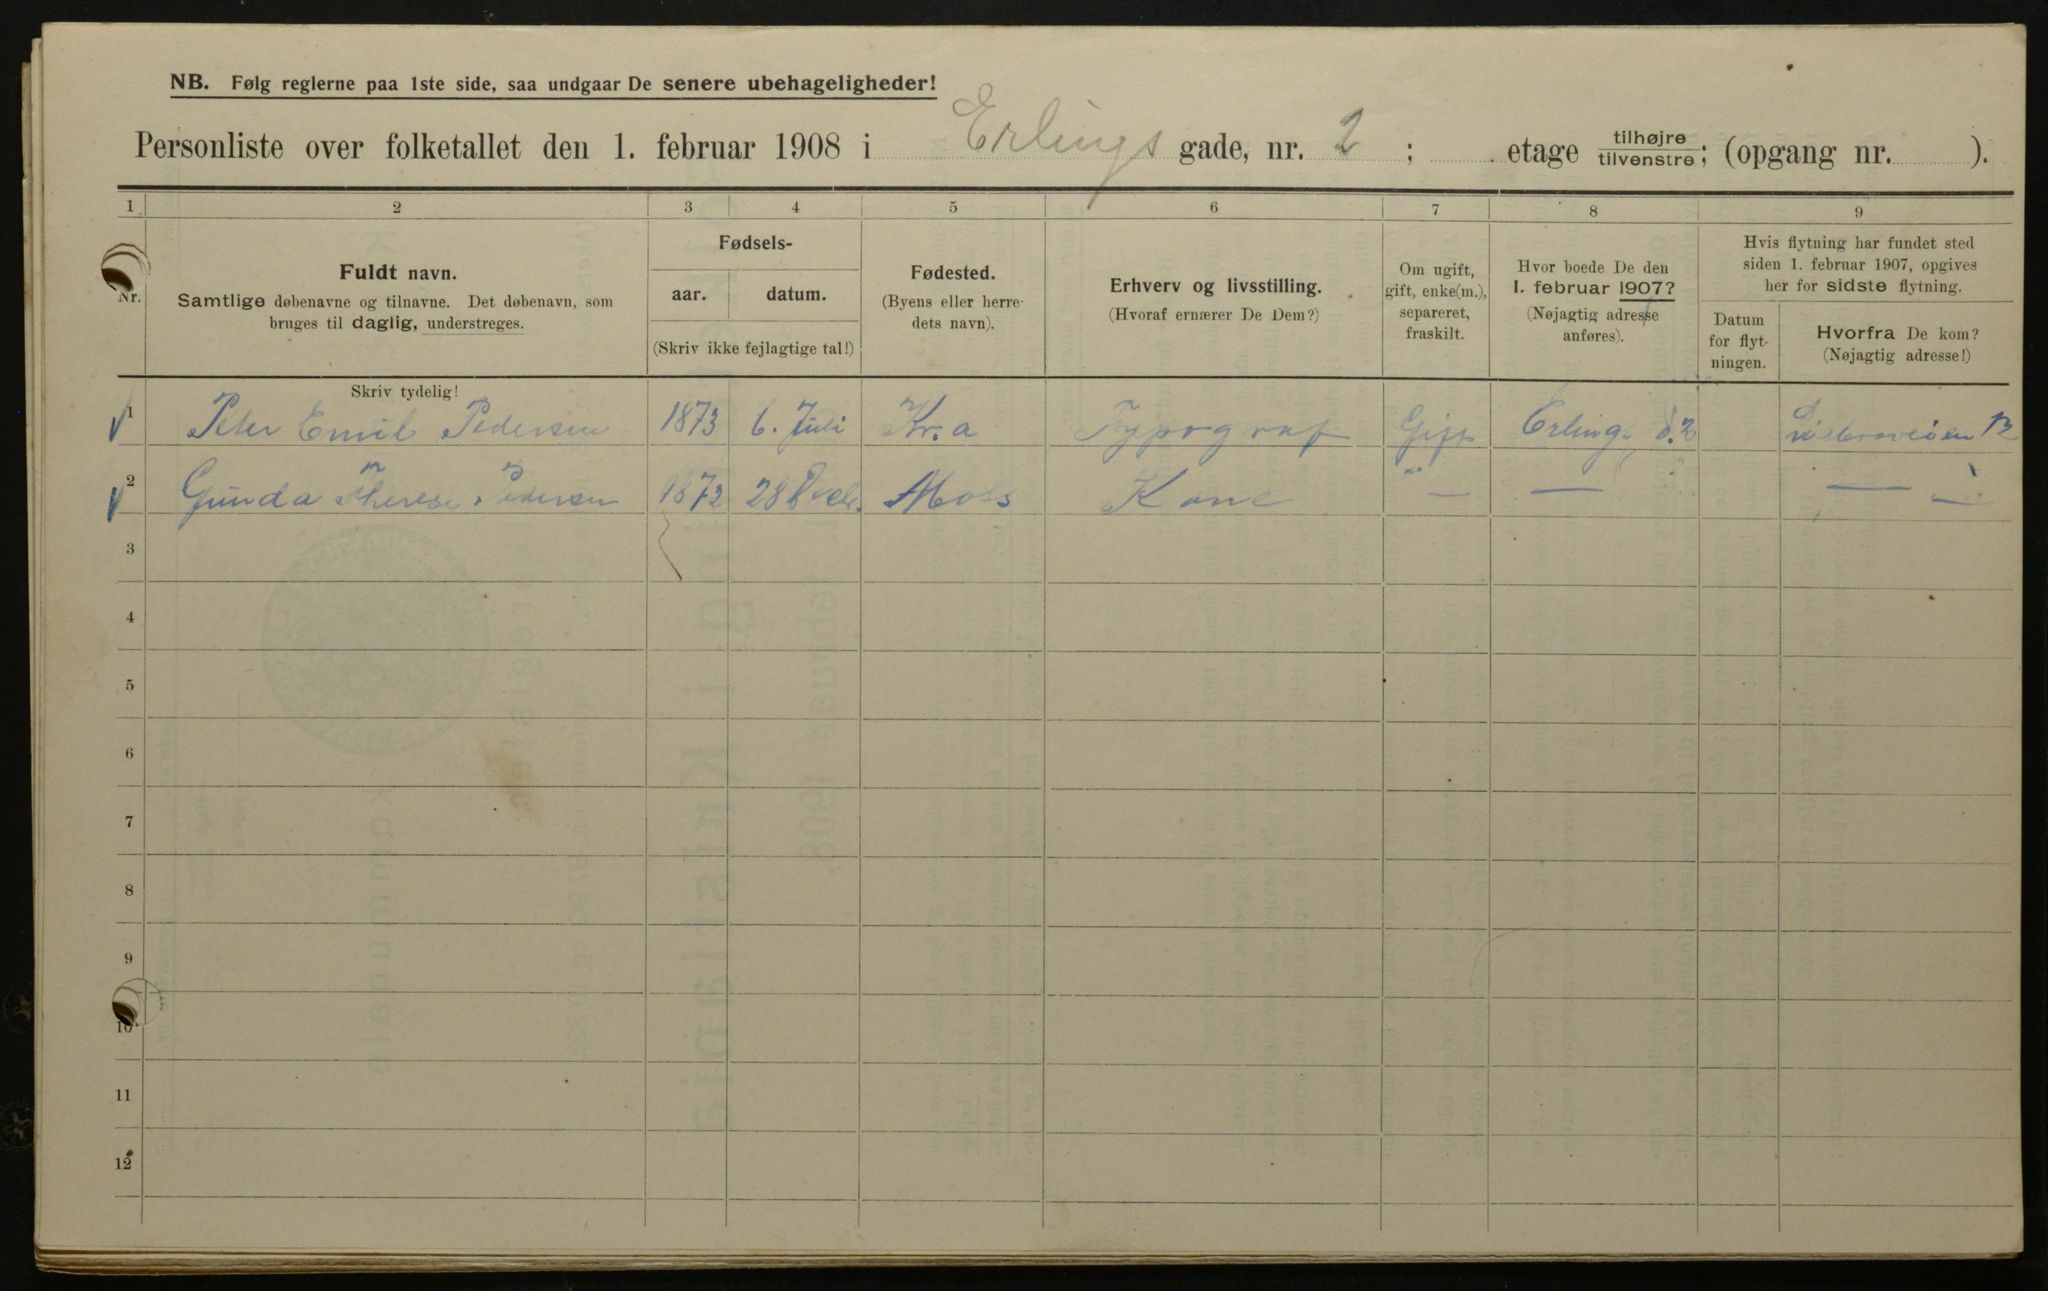 NB. Følg reglerne paa 1ste side, saa undgaar De senere ubehageligheder!
Personliste over folketallet den 1. februar 1908 i Erlings gade, nr. 2 ; etage tilhøjre tilvenstre; (opgang nr. ).
1 2 3 4 5 6 7 8 9
Nr.
Fuldt navn.
Samtlige døbenavne og tilnavne. Det døbenavn, som
bruges til daglig, understreges.
Fødsels-
aar. datum.
(Skriv ikke fejlagtige tal!)
Fødested.
(Byens eller herre-
dets navn).
Erhverv og livsstilling.
(Hvoraf ernærer De Dem?)
Om ugift,
gift, enke(m.),
separeret,
fraskilt.
Hvor boede De den
1. februar 1907?
(Nøjagtig adresse
anføres).
Hvis flytning har fundet sted
siden 1. februar 1907, opgives
her for sidste flytning.
Datum
for flyt-
ningen.
Hvorfra De kom?
(Nøjagtig adresse!)
Skriv tydelig!
1 Peter Emil Pedersen 1873 6. Juli Kr.a Typograf Gift Erlings 2 12
2 Gunda Therese Pedersen 1872 28 Moss Kone " — — — —
3
4
5
6
7
8
9
10
11
12